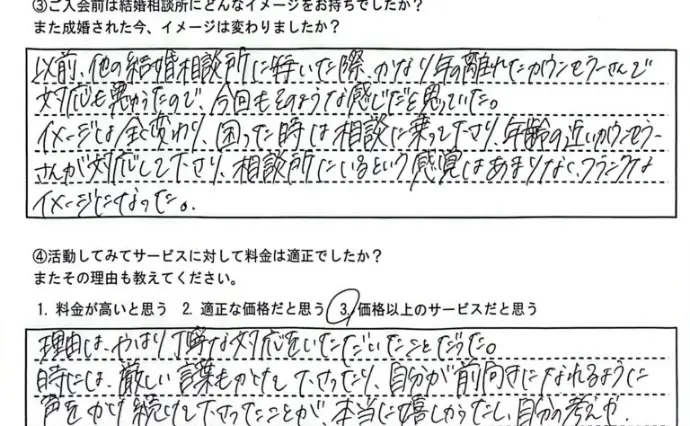 ③ご入会前は結婚相談所にどんなイメージをお持ちでしたか?
また成婚された今、イメージは変わりましたか?
以前、他の結婚相談所に特いた際、かなり年の離れたカウンセラーさんで
対応も悪かったので、今回もそのような感じだと思っていた。
イメージは全く変わり、困った時は相談に乗って下さり、年齢の近いカウンセラー
さんが対応して下さり、相談所にいるという感覚はあまりなく、フランクな
イメージになった。
④活動してみてサービスに対して料金は適正でしたか?
またその理由も教えてください。
1. 料金が高いと思う 2. 適正な価格だと思う 3. 価格以上のサービスだと思う
理由は、やはり丁寧な対応をいただいたことだった。
時には、厳しい言葉もかけて下さったり、自分が前向きになれるように
声をかけ続けて下さったことが、本当に嬉しかったし、自分の考えや